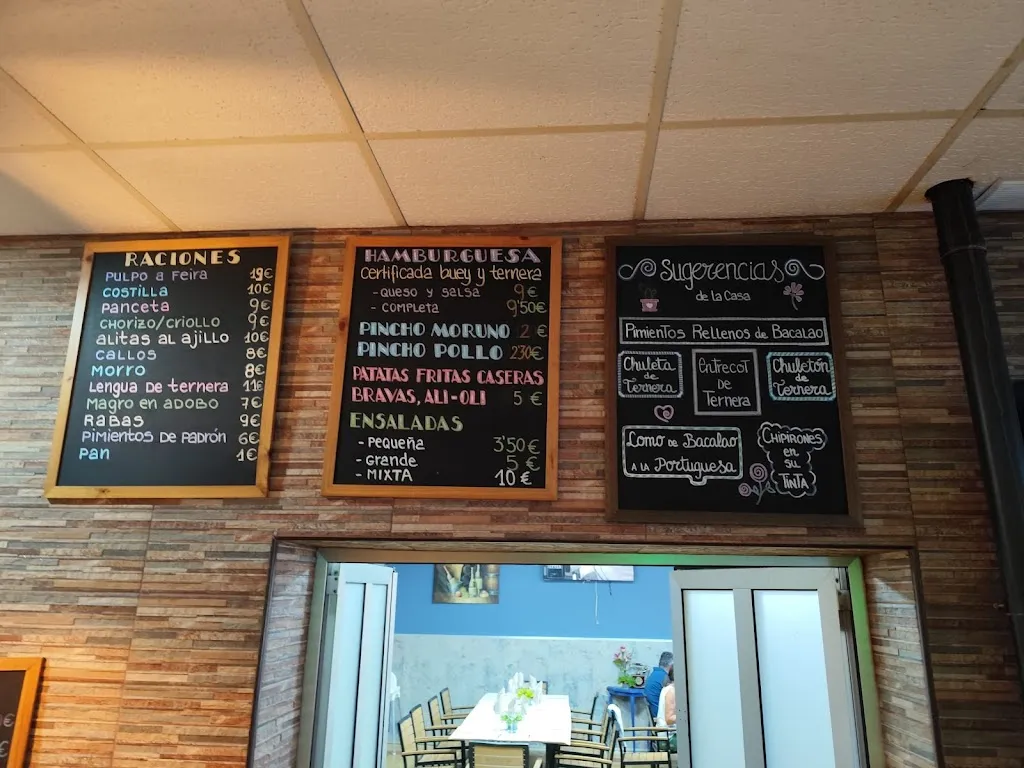 RACIONES
PULPO a Feira 19€
COSTILLA 10€
Panceta 9€
CHORIZO/CRIOLLO 9€
alitas al ajillo 10€
CALLOS 8€
MORRO 8€
Lengua de ternera 11€
Magro en ADOBO 7€
RaBas 9€
Pimientos de Padrón 6€
Pan 1€
HAMBURGUESA
Certificada buey y ternera
- QUESO y SALSA 9€
- COMPLETA 9'50€
PINCHO MORUNO 2 €
PINCHO POLLO 230€
PATATAS FRITAS CASERAS
BRAVAS, ALI-OLI 5 €
ENSALADAS
- Pequeña 3'50€
- Grande 5 €
- MIXTA 10 €
Sugerencias
de la Casa
Pimientos Rellenos de Bacalao
Chuleta
de
Ternera
Entrecot
DE
Ternera
Chuletón
de
Ternera
Lomo de Bacalao
A LA Portuguesa
CHIPIRONES
en
su
TINTA
€
€